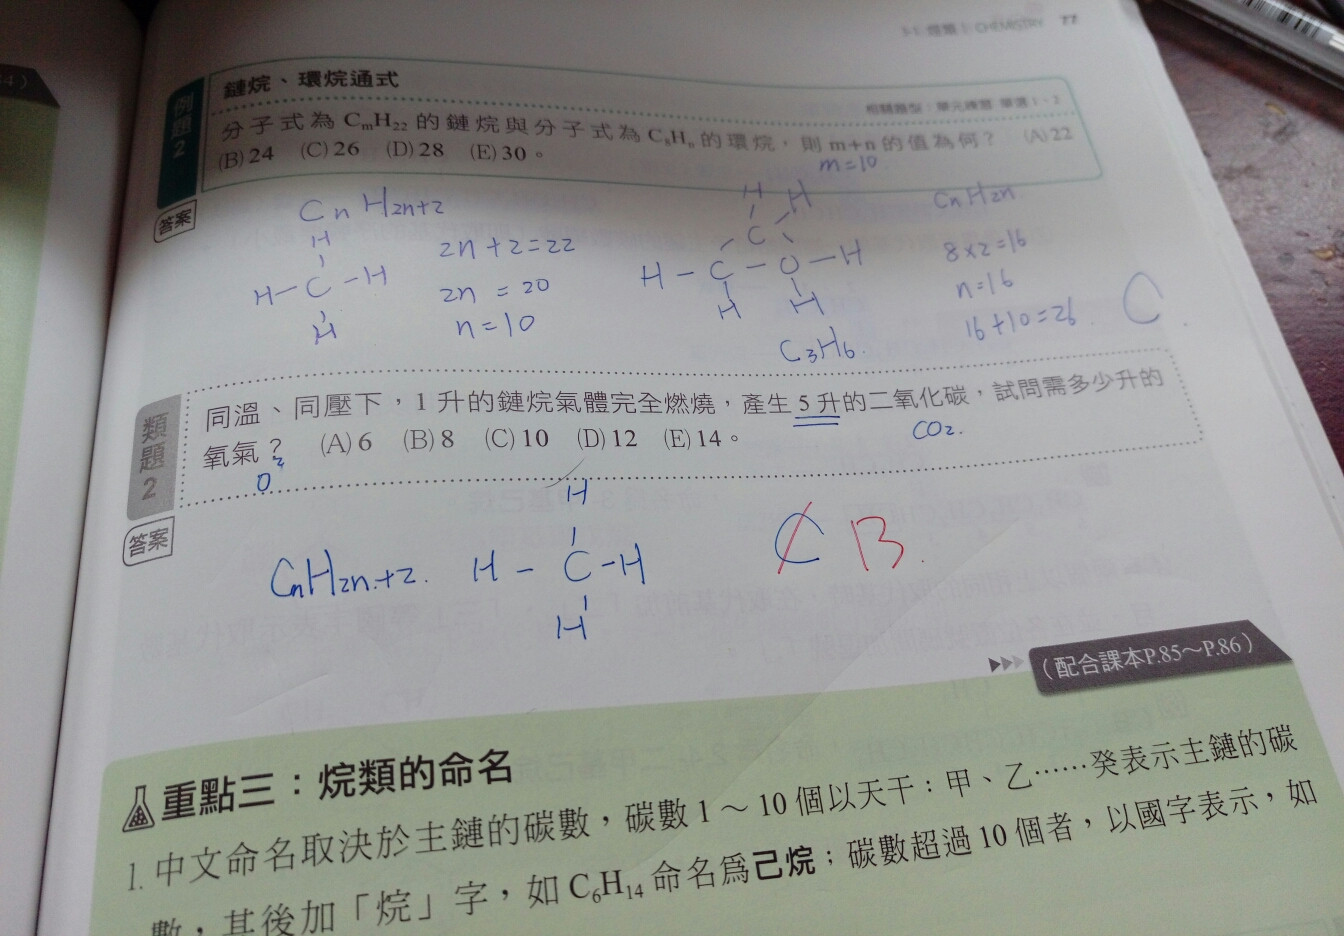 3-1 烴類 CHEMISTRY 77
例題2
鏈烷、環烷通式
相關題型：單元練習 單選1、2
分子式為 CmH22 的鏈烷與分子式為 C8Hn 的環烷，則 m+n 的值為何？ (A) 22
(B) 24 (C) 26 (D) 28 (E) 30。
m=10
答案
CnH2n+2
2n+2=22
2n = 20
n=10
H
H-C-H
H
H H
C
H-C-C-H
H H
C3H6.
CnH2n
8×2=16
n=16
16+10=26.
C.
類題2
同溫、同壓下，1 升的鏈烷氣體完全燃燒，產生 5 升的二氧化碳，試問需多少升的
氧氣？ (A) 6 (B) 8 (C) 10 (D) 12 (E) 14。
CO2.
O2
答案
CnH2n+2.
H
H-C-H
H
C B.
(配合課本P.85～P.86)
重點三：烷類的命名
1. 中文命名取決於主鏈的碳數，碳數 1～10 個以天干：甲、乙……癸表示主鏈的碳
數，其後加「烷」字，如 C6H14 命名為己烷；碳數超過 10 個者，以國字表示，如